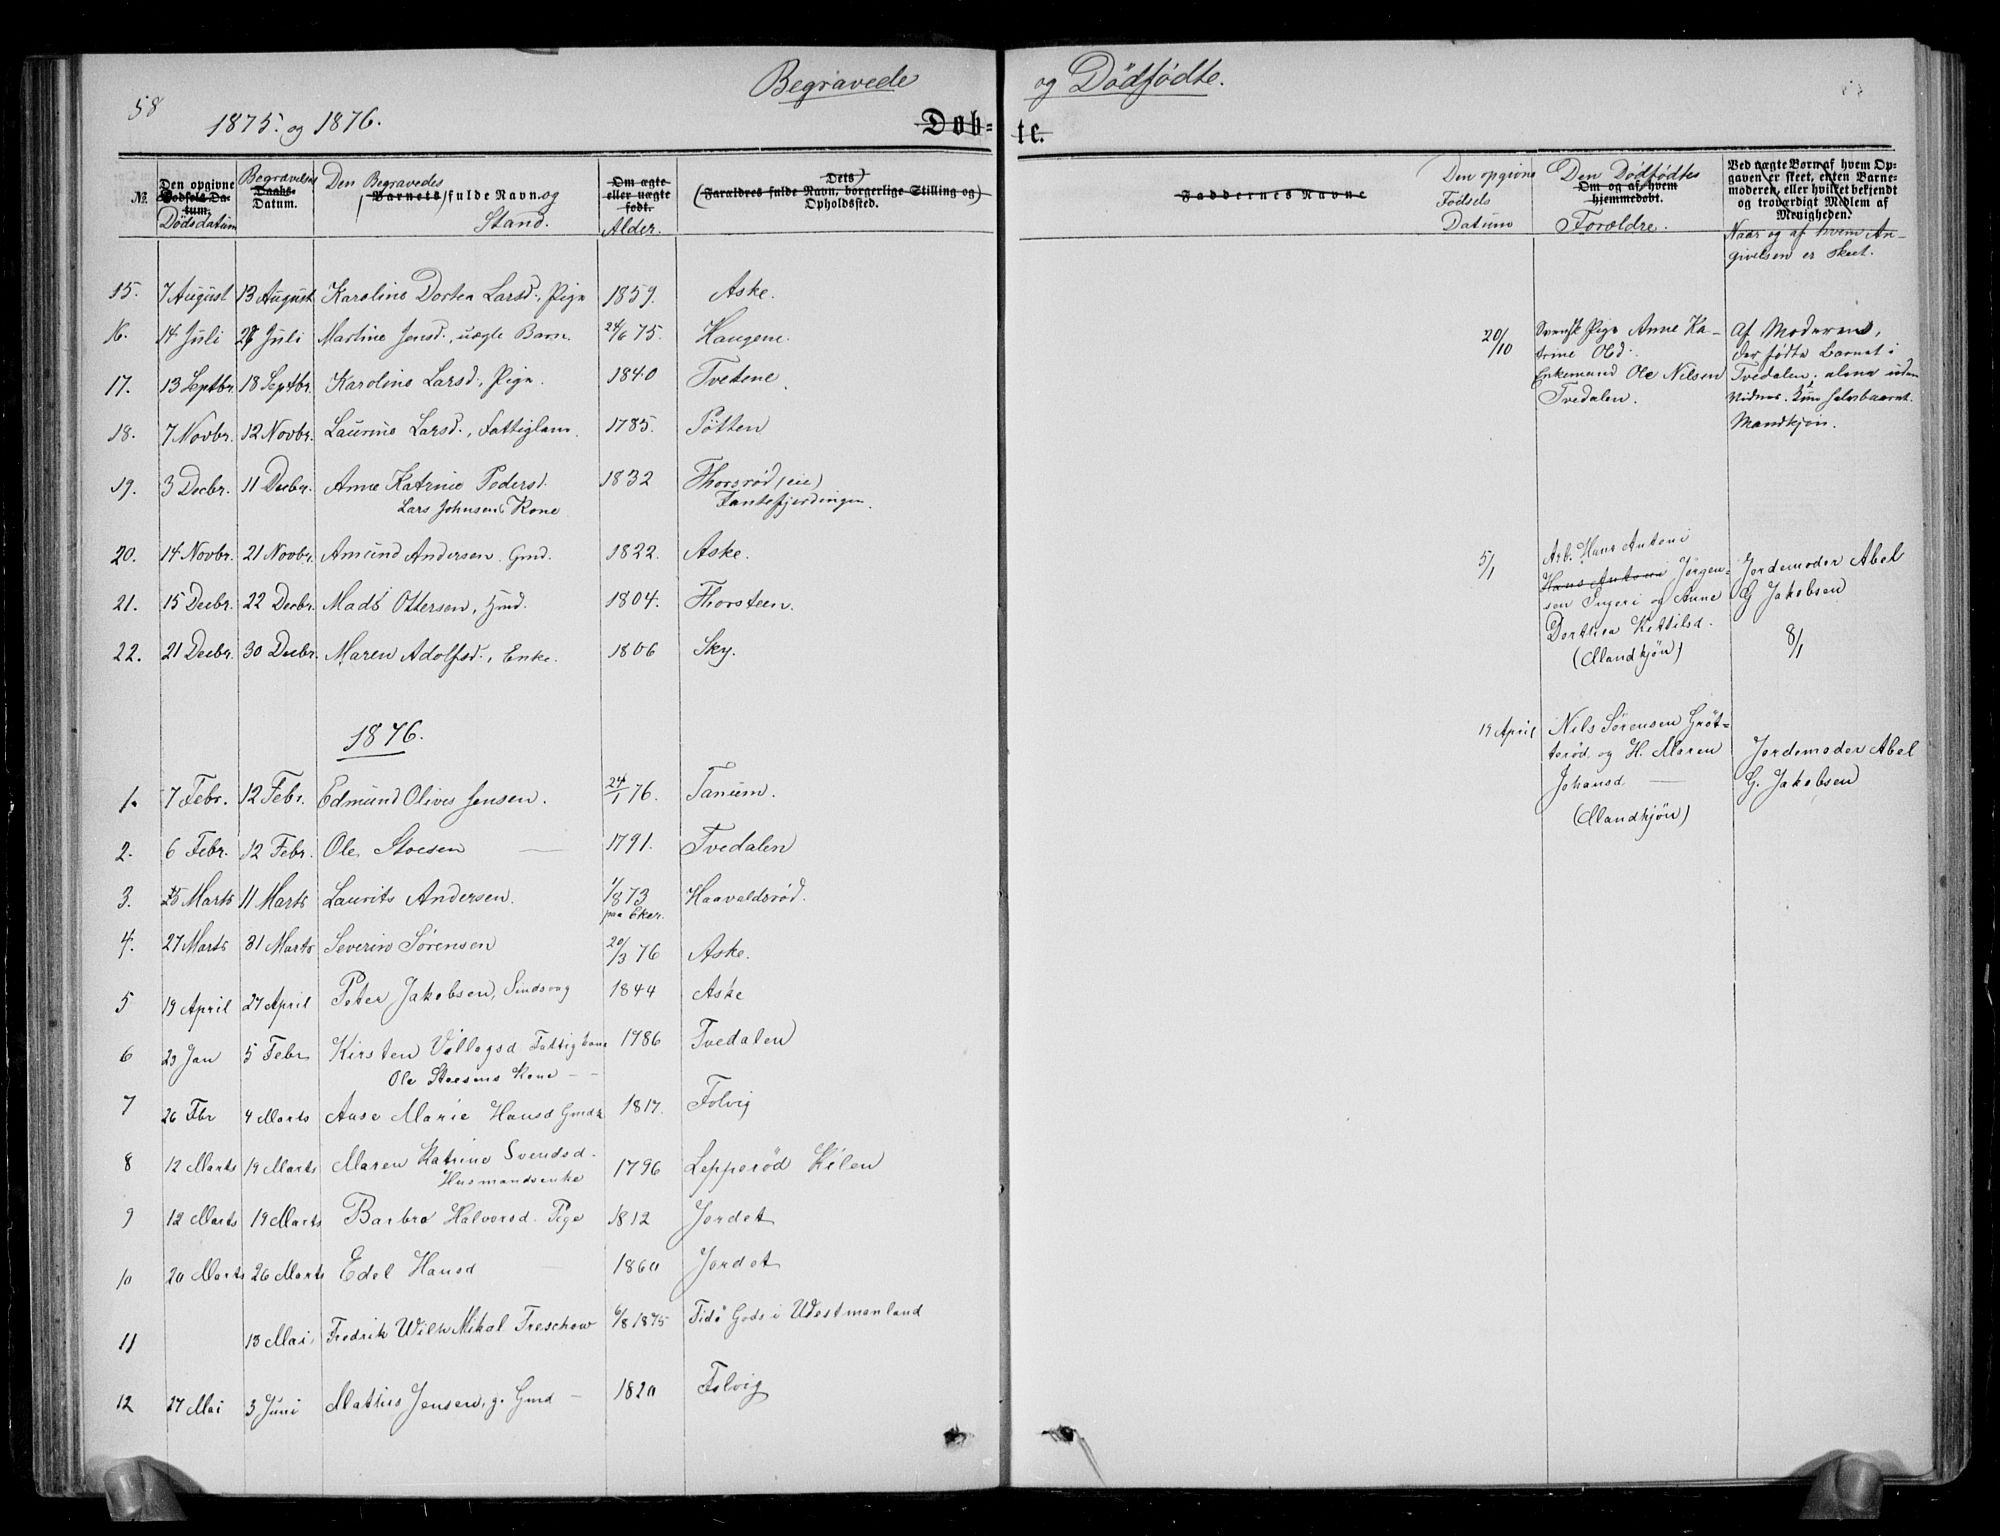 58
Begravede
og Dödfödte.
1875. og 1876.
Døb-
te.
№.
Den opgivne Fødsels Datum. Dödsdatum
Begravelses Daabs-Datum.
Den Begravedes Barnets fulde Navn og Stand.
Om ægte eller uægte født. Alder.
Dets (Forældres fulde Navn, borgerlige Stilling og) Opholdssted.
Faddernes Navne
Den opgivne Födsels Datum
Den Dödfödtes Om og af hvem hjemmedøbt. Forældre.
Ved uægte Børn af hvem Opgaven er skeet, enten Barnemoderen, eller hvilket bekjendt og troværdigt Medlem af Menigheden.
Naar og af hvem Angivelsen er skeet.
15. 7 August 13 August Karoline Dortea Larsd., Pige 1859. Aske.
16. 14 Juli 21 Juli Martine Jensd., uægte Barn. 24/6 75. Haugene.
17. 13 Septbr. 18 Septbr. Karoline Larsd., Pige. 1840 Tvetene.
18. 7 Novbr. 12 Novbr. Laurine Larsd., Fattiglem. 1785. Pøtten
19. 3 Decbr. 11 Decbr. Anne Katrine Pedersd. 1832 Thorsrød (eie)
Lars Johnsens Kone Fantefjerdingen.
20. 14 Novbr. 21 Novbr. Amund Andersen, Gmd. 1822. Aske.
21. 15 Decbr. 22 Decbr. Mads Ottersen, Gmd. 1804. Thorsteen.
22. 21 Decbr. 30 Decbr. Maren Adolfsd., Enke. 1806 Sky.
1876.
1. 7 Febr. 12 Febr. Edmund Olives Jensen. 24/1 76. Tanum.
2. 6 Febr. 12 Febr. Ole Stoesen 1791. Tvedalen
3. 5 Marts 11 Marts Laurits Andersen. 1/8 73 Haavaldsrød.
paa Eker.
4. 27 Marts 31 Marts Severin Sørensen 20/3 76 Aske.
5 19 April 27 April Peter Jakobsen, Sindsvag 1844 Aske
6 23 Jan 5 Febr Kirsten Villagsd Fattigkone 1786 Tvedalen
Ole Stoesens Kone
7 26 Fbr 4 Marts Aase Marie Hansd Gmdk 1817. Folvig
8 12 Marts 19 Marts Maren Katrine Svendsd. 1796 Lepperød Kilen
Husmandsenke
9 12 Marts 19 Marts Barbro Halvorsd. Pige 1812 Jordet
10 20 Marts 26 Marts Edel Hansd 1860 Jordet
11 13 Mai, Fredrik Wilh Mikal Treschow 6/8 1875 Tidö Gods i Westmanland
12 27 Mai 3 Juni Mathis Jensen, g. Gmd 1820 Folvig
20/10 Svensk Pige Anne Ka-
trine Olsd.
Enkemand Ole Nilsen
Tvedalen.
Af Moderens,
der fødte Barnet i
Tvedalen alene uden
Vidner.
Mandkjøn.
5/1 Arb. Hans Antoni
Hans Antoni Jørgen-
sen og Anne
Dorthea Kittilsd.
(Mandkjön)
Jordemoder Abel
G Jakobsen
8/1
19 April Nils Sørensen Gröt-
terød og H. Maren
Johansd
(Mandkjön)
Jordemoder Abel
G. Jakobsen